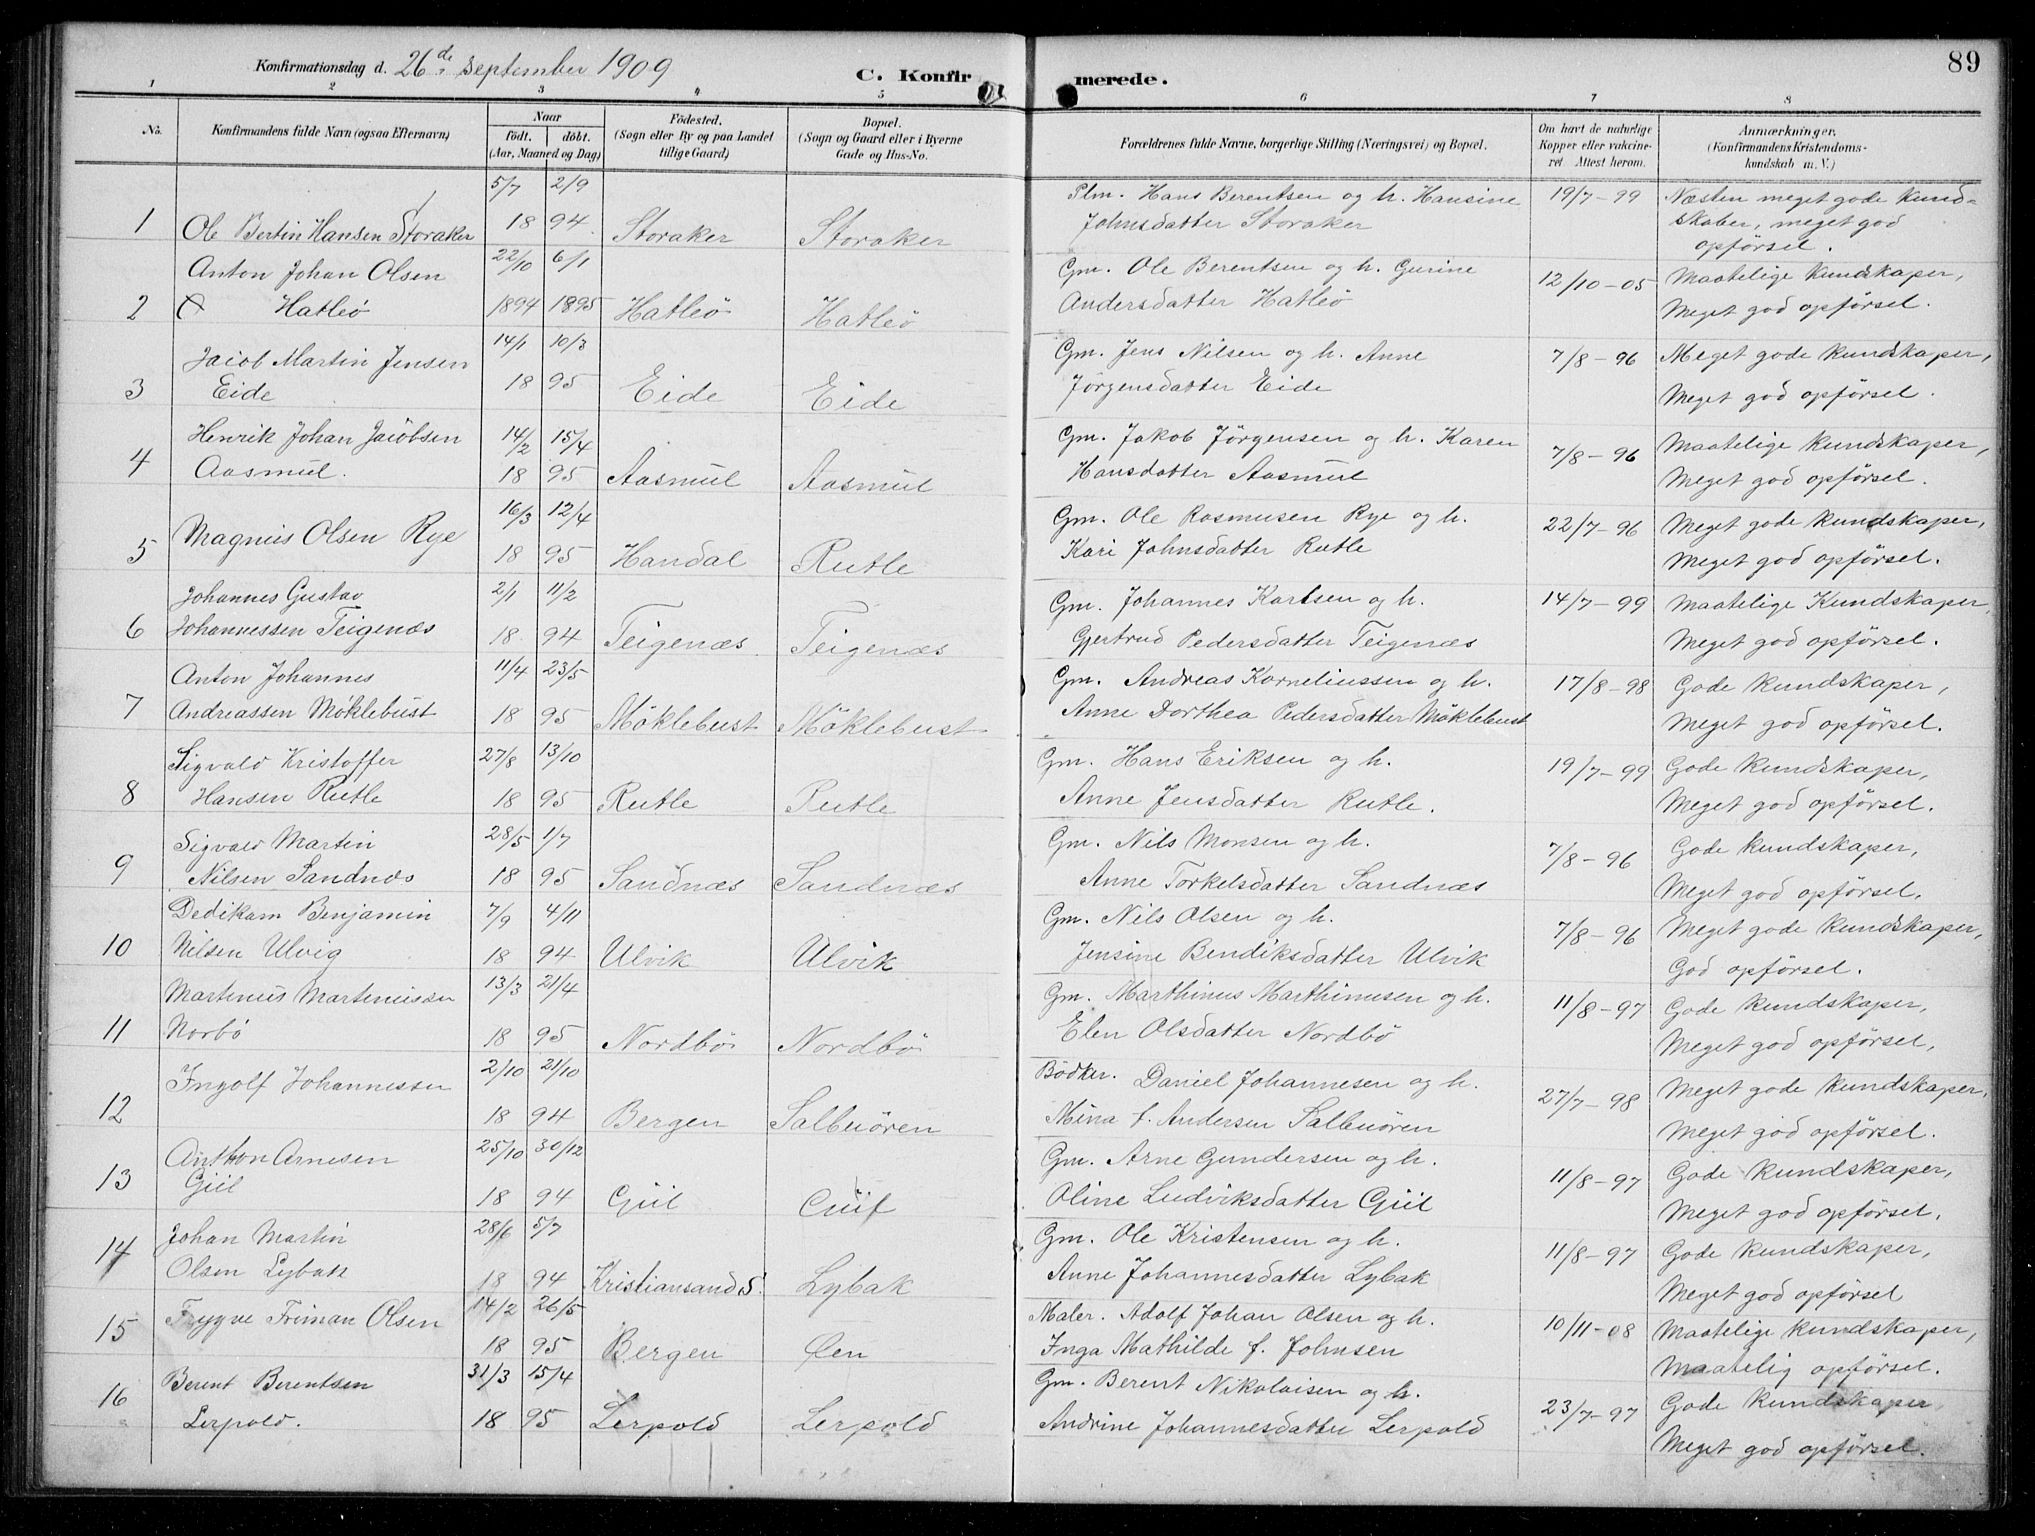 89
Konfirmationsdag d. 26de september 1909
C. Konfirmerede.
1 2 3 4 5 6 7 8
No.
Konfirmandens fulde Navn (ogsaa Efternavn)
Naar
født. døbt.
(Aar, Maaned og Dag)
Fødested.
(Sogn eller By og paa Landet
tillige Gaard)
Bopæl.
(Sogn og Gaard eller i Byerne
Gade og Hus-No.
Forældrenes fulde Navne, borgerlige Stilling (Næringsvei) og Bopæl.
Om havt de naturlige
Kopper eller vakcine-
ret. Attest herom.
Anmærkninger.
(Konfirmandens Kristendoms-
kundskab m. V.)
5/7 2/9 Plm. Hans Berentsen og h. Hansine 19/7-99 Næsten meget gode kund-
1 Ole Bertin Hansen Storaker 18 94 Storaker Storaker Johnsdatter Storaker skaber, meget god
opførsel.
Anton Johan Olsen 22/10 6/1 Gm. Ole Berentsen og h. Gurine 12/10-05 Maatelige kundskaper,
2 Hatleö 1894 1895 Hatleö Hatleö Andersdatter Hatleö Meget god opførsel.
Jacob Martin Jensen 14/1 10/3 Gm. Jens Nilsen og h. Anne 7/8-96 Meget gode kundskaper,
3 Eide 18 95 Eide Eide Jörgensdatter Eide Meget god opførsel.
Henrik Johan Jacobsen 14/2 15/4 Gm. Jakob Jörgensen og h. Karen 7/8-96 Maatelige kundskaper,
4 Aasmul. 18 95 Aasmul Aasmul Hansdatter Aasmul Meget god opførsel.
Magnus Olsen Rye 16/3 12/4 Gm. Ole Rasmusen Rye og h. 22/7-96 Meget gode kundskaper,
5 18 95 Handal Rutle Kari Johnsdatter Rutle Meget god opførsel.
Johannes Gustav 2/1 11/2 Gm. Johannes Karlsen og h. 14/7-99 Maatelige Kundskaper,
6 Johannessen Teigenæs 18 94 Teigenæs Teigenæs Gjertrud Pedersdatter Teigenæs Meget god opførsel.
Anton Johannes 11/4 23/5 Gm. Andreas Korneliussen og h. 17/8-98 Gode kundskaper,
7 Andreassen Möklebust 18 95 Möklebust Möklebust Anne Dorthea Pedersdatter Möklebust Meget god opførsel.
Sigvald Kristoffer 27/8 13/10 Gm. Hans Eriksen og h. 19/7-99 Gode kundskaper,
8 Hansen Rutle 18 95 Rutle Rutle Anne Jensdatter Rutle. Meget god opførsel.
Sigvald Martin 28/5 1/7 Gm. Nils Monsen og h. 7/8-96 Gode kundskaper,
9 Nilsen Sandnæs 18 95 Sandnæs Sandnæs Anne Torkelsdatter Sandnæs Meget god opførsel.
Dedikam Benjamin 7/9 4/11 Gm. Nils Olsen og h. 7/8-96 Meget gode kundskaper,
10 Nilsen Ulvig 18 94 Ulvik Ulvik Jensine Bendiksdatter Ulvik God opførsel.
Martenus Martenussen 13/3 21/4 Gm. Marthinus Marthinusen og h. 11/8-97 Gode kundskaper,
11 Norbö 18 95 Nordbö Nordbö Elen Olsdatter Nordbö Meget god opførsel,
Ingolf Johannessen 2/10 21/10 Bödker. Daniel Johannesen og h. 27/7-98 Meget gode kundskaper,
12 18 94 Bergen Salbuören Mina f. Andersen Salbuören Meget god opførsel.
Anthon Arnesen 25/10 30/12 Gm. Arne Gundersen og h. 11/8-97 Gode kundskaper,
13 Giil 18 94 Giil Oline Ludviksdatter Giil Meget god opførsel,
Johan Martin 28/6 5/7 Gm. Ole Kristensen og h. 11/8-97 Gode kundskaper,
14 Olsen Lybak 18 94 Kristiansand S. Lybak Anne Johannesdatter Lybak Meget god opførsel
Trygve Friman Olsen 14/2 26/5 Maler. Adolf Johan Olsen og h. 10/11-08 Maatelige kundskaper,
15 18 95 Bergen Öen Inga Mathilde f. Johnsen Maatelig opførsel.
Berent Berentsen 31/3 15/4 Gm. Berent Nikolaisen og h. 23/7-97 Gode kundskaper,
16 Lerpold. 18 95 Lerpold Lerpold Andrine Johannesdatter Lerpold Meget god opførsel.